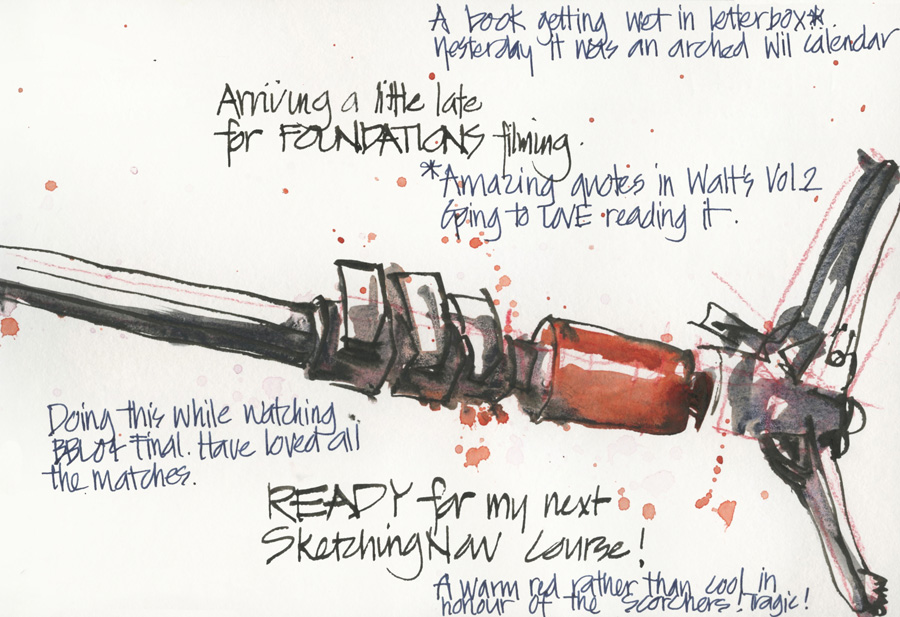 A book getting wet in letterbox*.
Yesterday it was an arched Wil calendar
Arriving a little late
for FOUNDATIONS filming.
*Amazing quotes in Walt's Vol.2
Going to LOVE reading it.
Doing this while watching
BBL04 Final. Have loved all
the matches.
READY for my next
SketchingNow Course!
A warm red rather than cool in
honour of the Scorchers! Tragic!